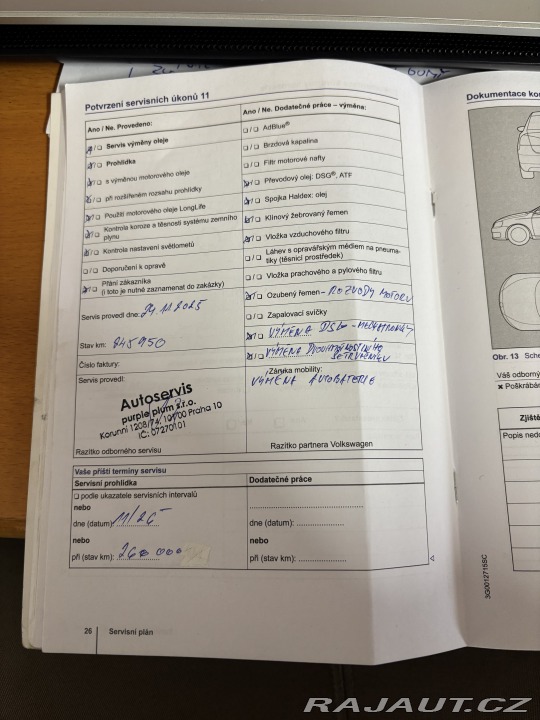 Potvrzení servisních úkonů 11
Ano / Ne. Provedeno:
☒/☐ Servis výměny oleje
☒/☐ Prohlídka
☒/☐ s výměnou motorového oleje
☒/☐ při rozšířeném rozsahu prohlídky
☒/☐ Použití motorového oleje LongLife
☒/☐ Kontrola koroze a těsnosti systému zemního plynu
☒/☐ Kontrola nastavení světlometů
☐/☐ Doporučení k opravě
☒/☐ Přání zákazníka
(i toto je nutné zaznamenat do zakázky)
Servis provedl dne: 24.11.2025
Stav km: 245950
Číslo faktury:
Servis provedl:
Autoservis
purple plum s.r.o.
Korunní 1208/74, 101 00 Praha 10
IČ: 07270101
Razítko odborného servisu
Ano / Ne. Dodatečné práce – výměna:
☐/☐ AdBlue®
☐/☐ Brzdová kapalina
☐/☐ Filtr motorové nafty
☒/☐ Převodový olej: DSG®, ATF
☒/☐ Spojka Haldex: olej
☒/☐ Klínový žebrovaný řemen
☒/☐ Vložka vzduchového filtru
☐/☐ Láhev s opravářským médiem na pneumatiky (těsnicí prostředek)
☐/☐ Vložka prachového a pylového filtru
☒/☐ Ozubený řemen – ROZVODY MOTORU
☐/☐ Zapalovací svíčky
☒/☐ VÝMĚNA DSG – MECHATRONIKY
☒/☐ VÝMĚNA DVOUHMOTNOSTNÍHO
SETRVAČNÍKU
Záruka mobility:
VÝMĚNA AUTOBATERIE
Razítko partnera Volkswagen
Vaše příští termíny servisu
Servisní prohlídka
☐ podle ukazatele servisních intervalů
nebo
dne (datum): 11/26
nebo
při (stav km): 260 000
Dodatečné práce
dne (datum):
nebo
při (stav km):
26 Servisní plán
Dokumentace ko
Obr. 13 Sche
Váš odborný
✖ Poškrábán
Zjiště
Popis nedo
3G0012715SC
RAJAUT.CZ